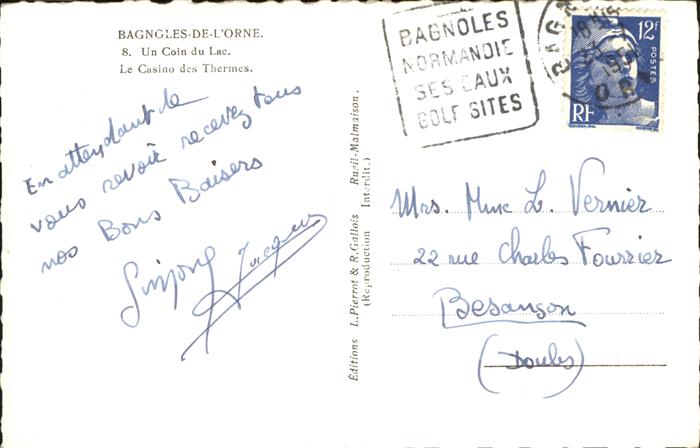 BAGNOLES-DE-L'ORNE.
8. Un Coin du Lac.
Le Casino des Thermes.
En attendant de
vous revoir recevez tous
nos Bons Baisers
Simone Jacques
Éditions L. Pierrot & R. Gallois Rueil-Malmaison.
(Reproduction Interdite)
BAGNOLES
NORMANDIE
SES EAUX
GOLF SITES
12F
POSTES
RF
Mrs. Mme L. Vernier
22 rue Charles Fourrier
Besançon
(Doubs)